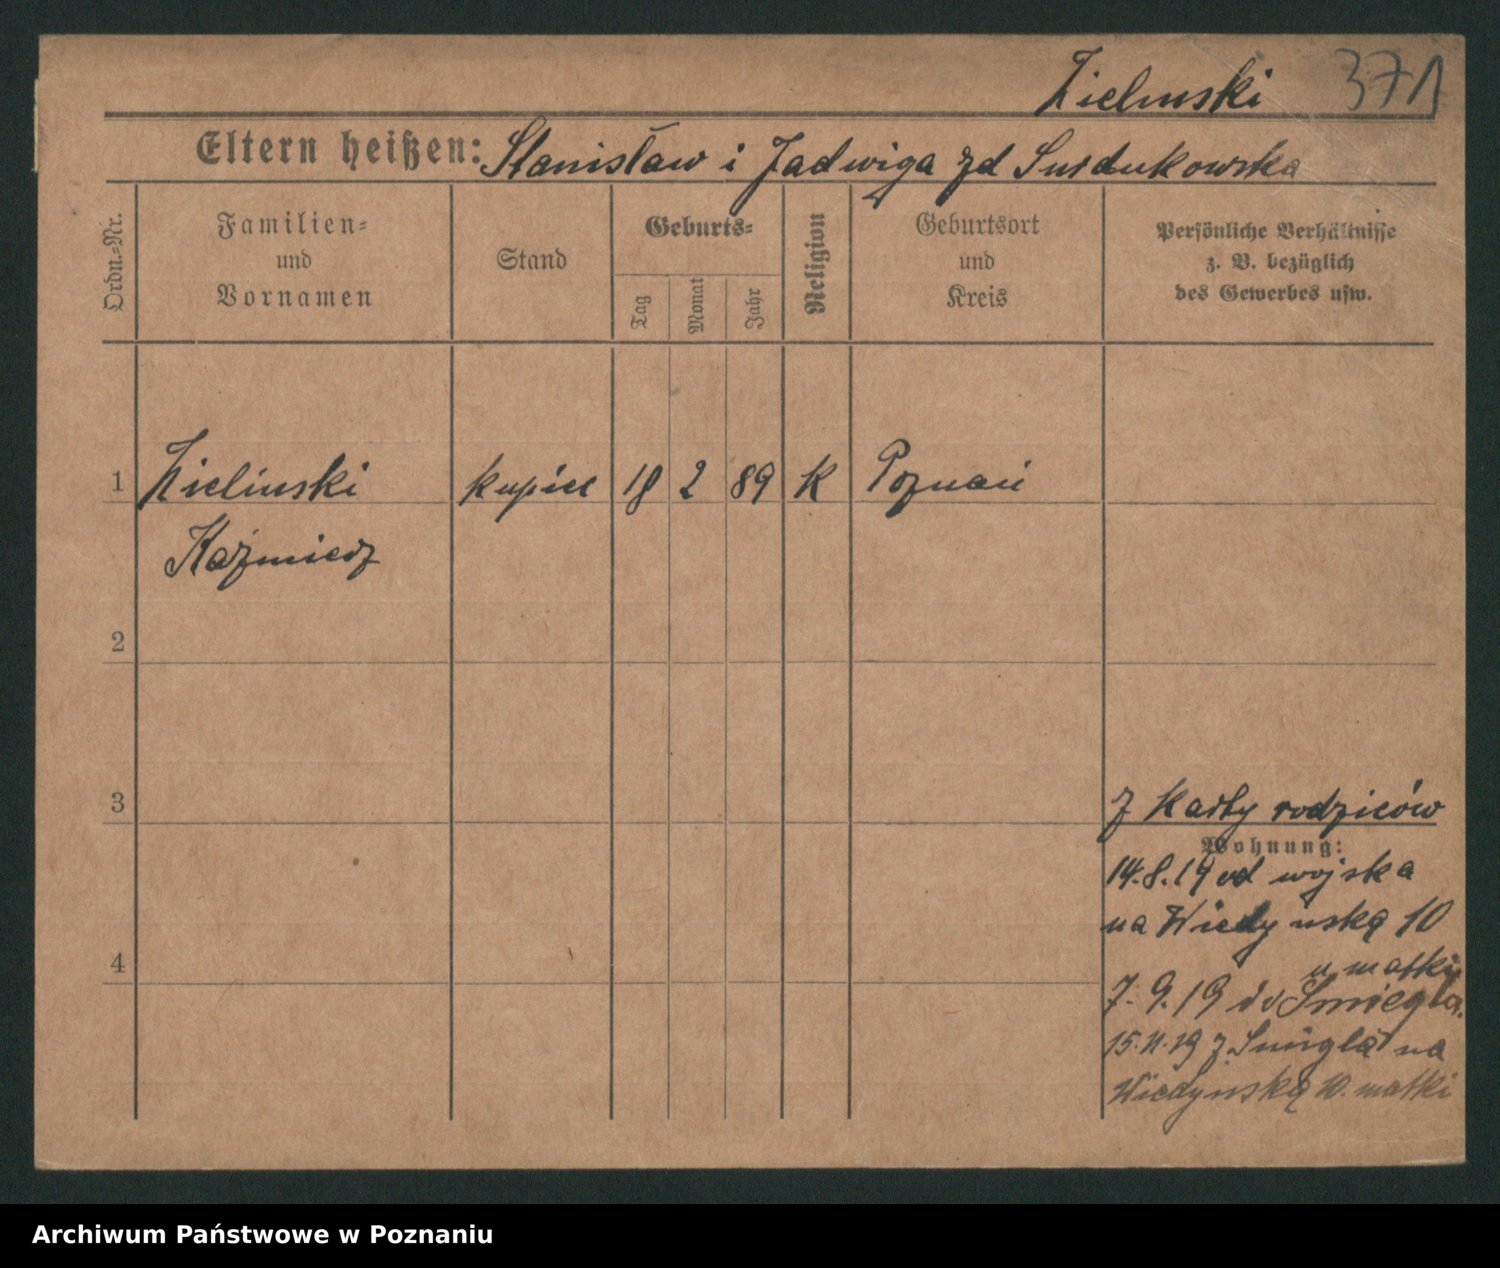 Zielinski 371
Eltern heißen: Stanisław i Jadwiga zd Surdukowska
Ordn.=Nr.
Familien=
und
Vornamen
Stand
Geburts=
Tag
Monat
Jahr
Religion
Geburtsort
und
Kreis
Persönliche Verhältnisse
z. B. bezüglich
des Gewerbes usw.
1 Zielinski kupiec 18 2 89 K Poznań
Kaźmierz
2
3
z Karty rodziców
Wohnung:
14.8.19 od wojska
na Wiedyńską 10
4
u matki
7.9.19 do Śmiegla.
15.11.19 z Śmigla na
Wiedyńską 10. matki
Archiwum Państwowe w Poznaniu